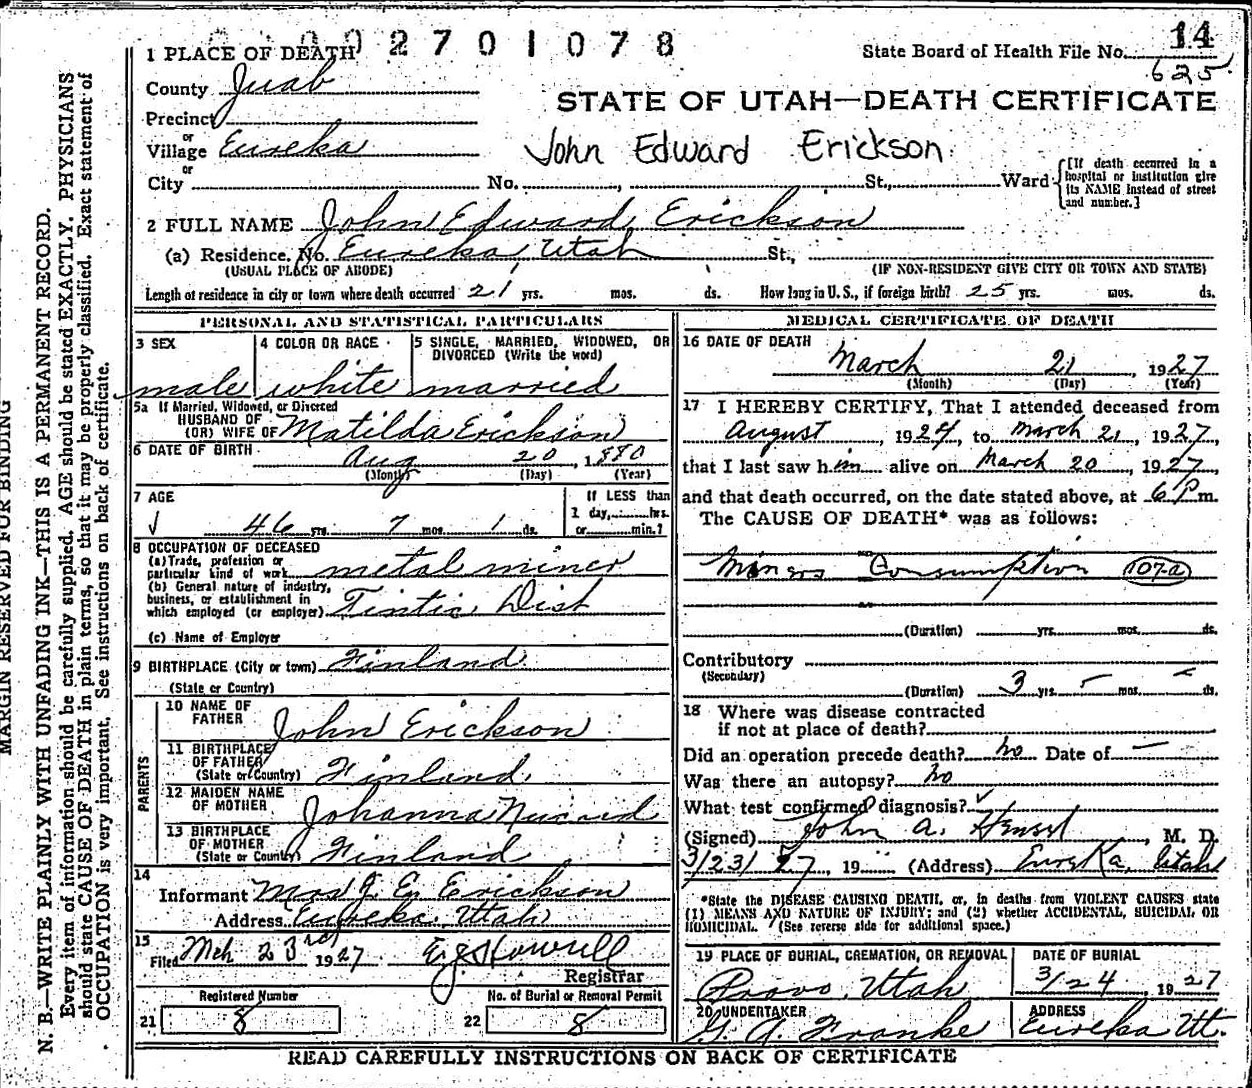 002701078
14
1 PLACE OF DEATH
State Board of Health File No.
625
County Juab
STATE OF UTAH—DEATH CERTIFICATE
Precinct
or
Village Eureka
John Edward Erickson
or
City No. , St., Ward
[If death occurred in a
hospital or institution give
its NAME instead of street
and number.]
2 FULL NAME John Edward Erickson
(a) Residence. No. Eureka Utah St.,
(USUAL PLACE OF ABODE) (IF NON-RESIDENT GIVE CITY OR TOWN AND STATE)
Length of residence in city or town where death occurred 21 yrs. mos. ds. How long in U. S., if foreign birth? 25 yrs. mos. ds.
PERSONAL AND STATISTICAL PARTICULARS
3 SEX
4 COLOR OR RACE
5 SINGLE, MARRIED, WIDOWED, OR
DIVORCED (Write the word)
male white married
5a If Married, Widowed, or Divorced
HUSBAND OF
(OR) WIFE OF Matilda Erickson
6 DATE OF BIRTH Aug 20, 1880
(Month) (Day) (Year)
7 AGE
If LESS than
1 day, hrs.
or min.?
√ 46 yrs. 7 mos. 1 ds.
8 OCCUPATION OF DECEASED
(a) Trade, profession or
particular kind of work metal miner
(b) General nature of industry,
business, or establishment in
which employed (or employer) Tintic Dist
(c) Name of Employer
9 BIRTHPLACE (City or town) Finland
(State or Country)
PARENTS
10 NAME OF
FATHER John Erickson
11 BIRTHPLACE
OF FATHER
(State or Country) Finland
12 MAIDEN NAME
OF MOTHER Johanna
13 BIRTHPLACE
OF MOTHER
(State or Country) Finland
14
Informant Mrs J. E. Erickson
Address Eureka, Utah
15
Filed Mch 23rd 1927
Registrar
Registered Number
No. of Burial or Removal Permit
21 8
22 8
MEDICAL CERTIFICATE OF DEATH
16 DATE OF DEATH
March 21, 1927
(Month) (Day) (Year)
17 I HEREBY CERTIFY, That I attended deceased from
August, 1924, to March 21, 1927,
that I last saw him alive on March 20, 1927
and that death occurred, on the date stated above, at 6 P m.
The CAUSE OF DEATH* was as follows:
Miners Consumption 107-a
(Duration) yrs. mos. ds.
Contributory
(Secondary)
(Duration) 3 yrs. - mos. - ds.
18 Where was disease contracted
if not at place of death?
Did an operation precede death? no Date of —
Was there an autopsy? no
What test confirmed diagnosis? √
(Signed) John A. Hensel, M. D.
3/23/27, 19 (Address) Eureka, Utah
*State the DISEASE CAUSING DEATH, or, in deaths from VIOLENT CAUSES state
(1) MEANS AND NATURE OF INJURY; and (2) whether ACCIDENTAL, SUICIDAL OR
HOMICIDAL. (See reverse side for additional space.)
19 PLACE OF BURIAL, CREMATION, OR REMOVAL
DATE OF BURIAL
Provo, Utah
3/24, 1927
20 UNDERTAKER
ADDRESS
G. A. Franke
Eureka Ut.
READ CAREFULLY INSTRUCTIONS ON BACK OF CERTIFICATE
MARGIN RESERVED FOR BINDING
N. B.—WRITE PLAINLY WITH UNFADING INK—THIS IS A PERMANENT RECORD.
Every item of information should be carefully supplied. AGE should be stated EXACTLY. PHYSICIANS
should state CAUSE OF DEATH in plain terms, so that it may be properly classified. Exact statement of
OCCUPATION is very important. See instructions on back of certificate.